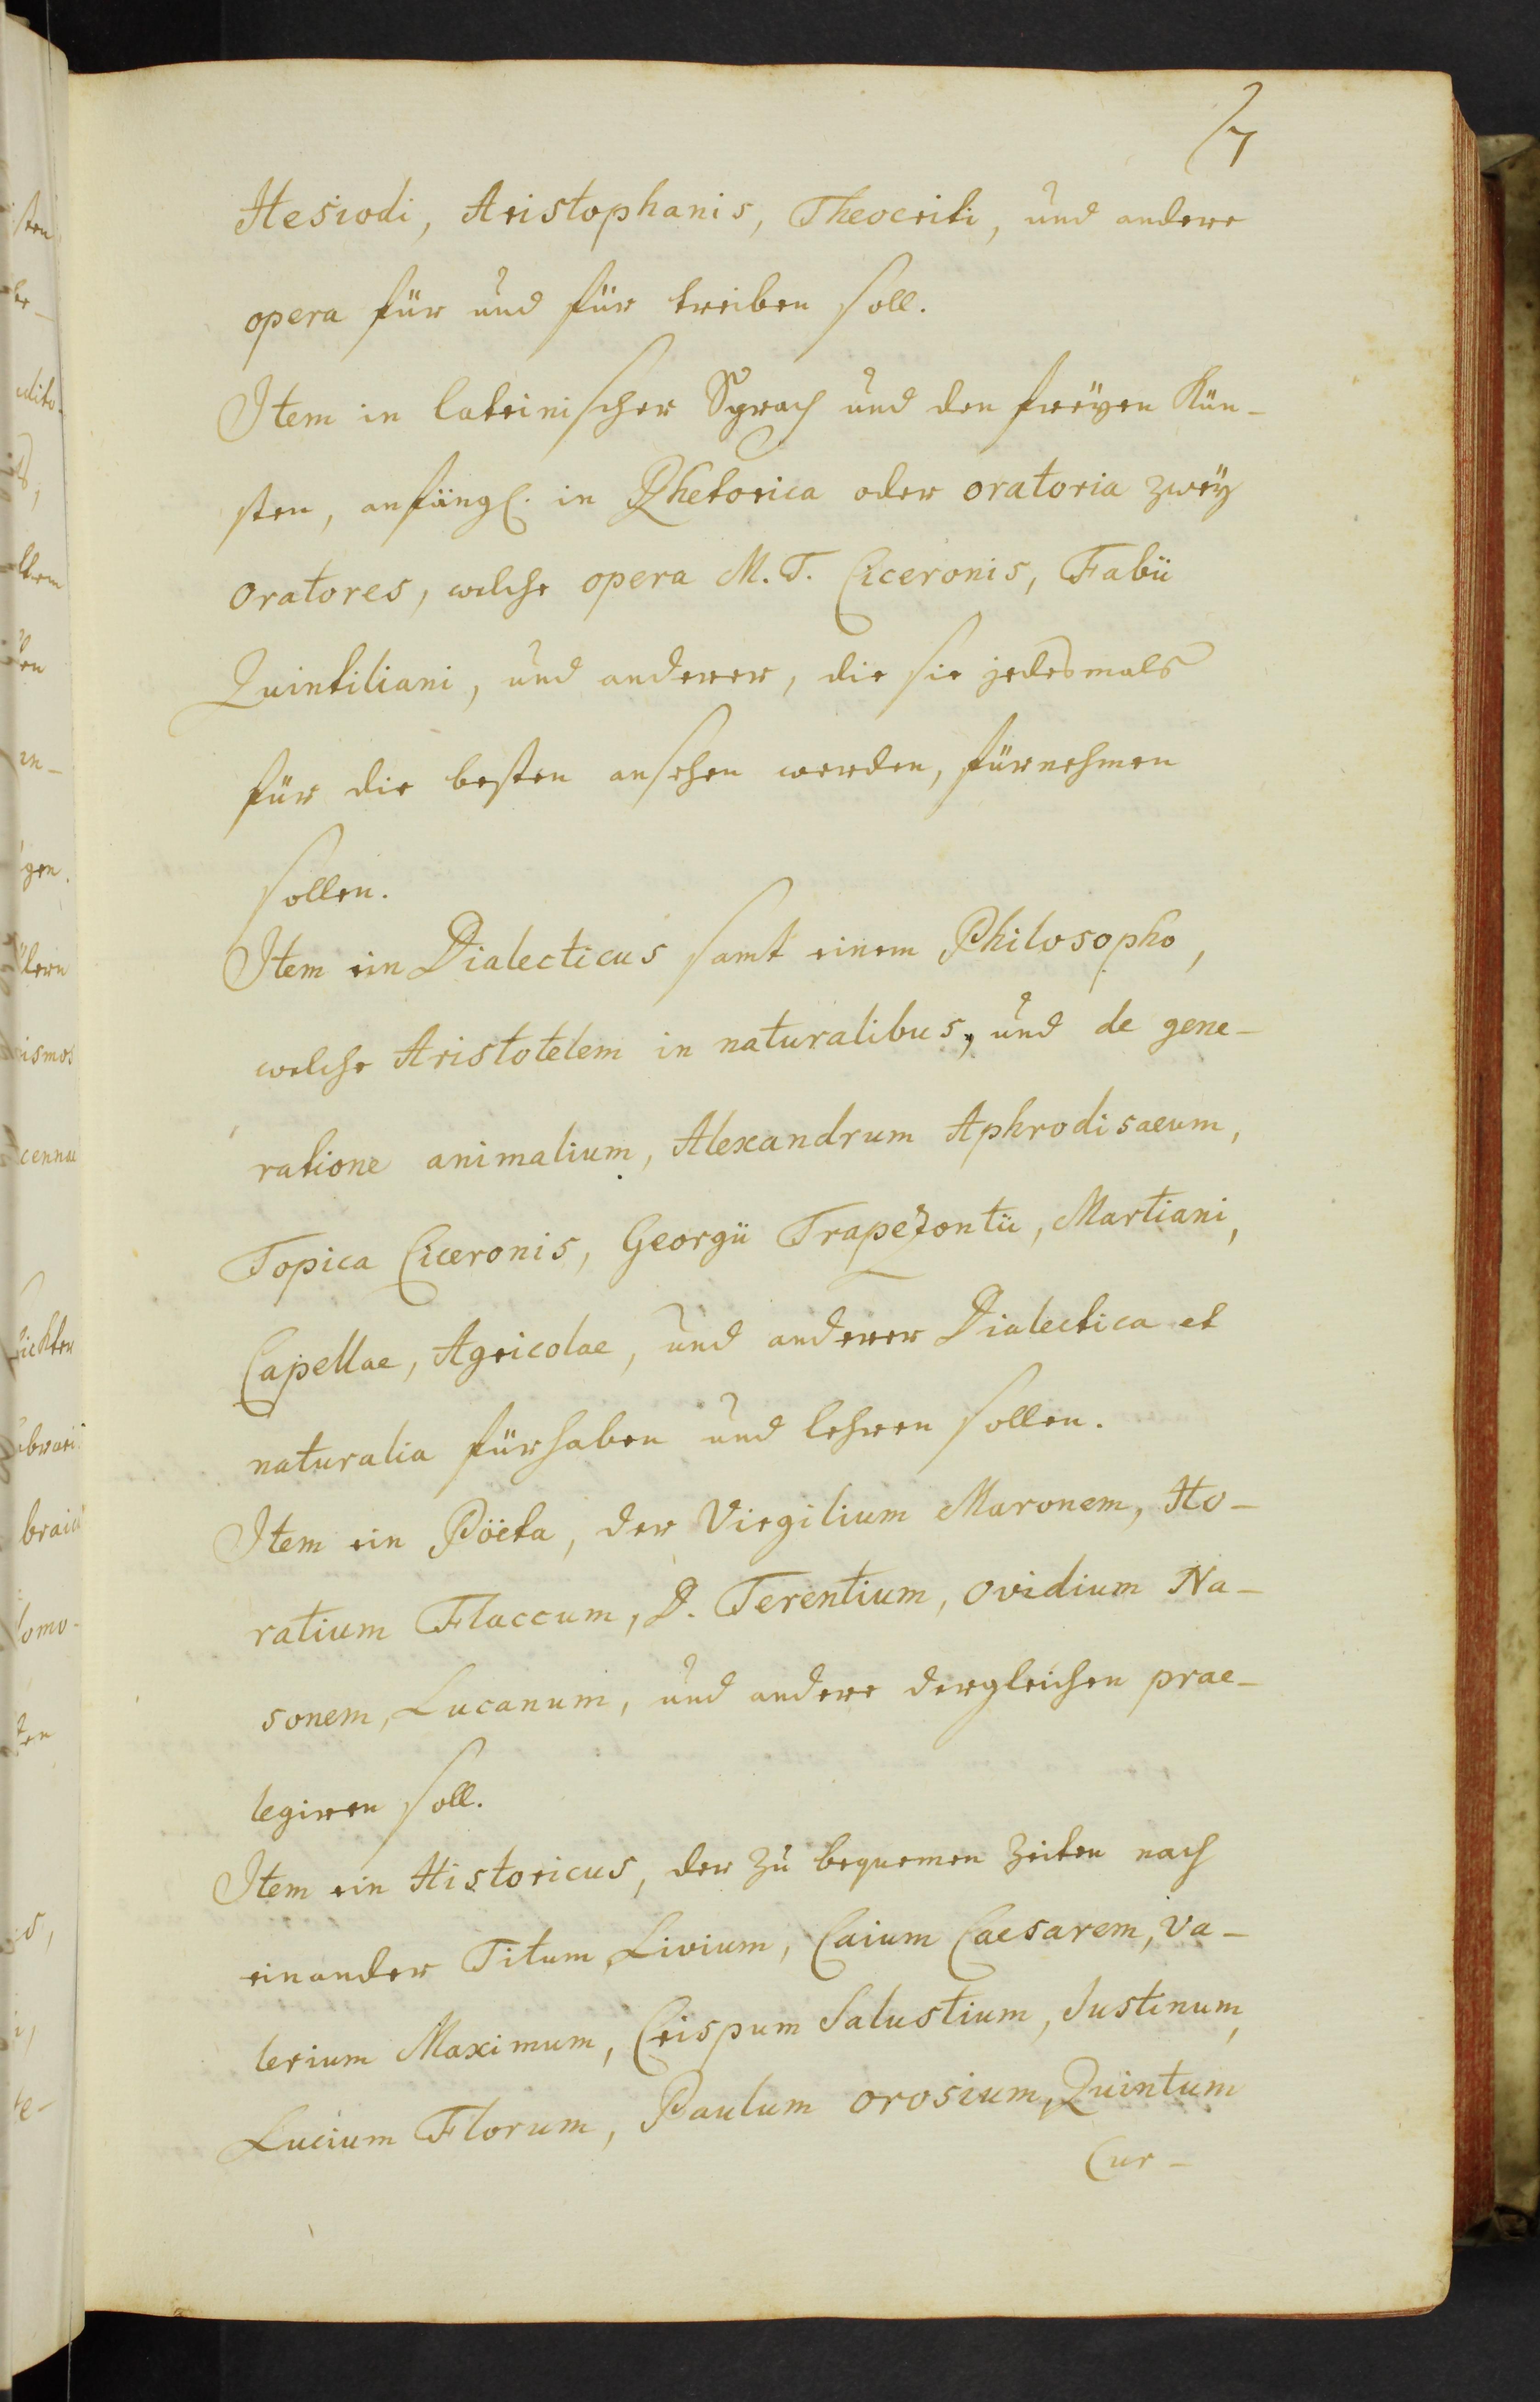 7
Hesiodi, Aristophanis, Theocriti, und andere
opera für und für treiben soll.
Item in lateinischer Sprach und den freyen Kün-
sten, anfängl. in Rhetorica oder oratoria zwey
oratores, welche opera M. T. Ciceronis, Fabii
Quintiliani, und anderer, die sie jedesmals
für die besten ansehen werden, fürnehmen
sollen.
Item ein Dialecticus samt einem Philosopho,
welche Aristotelem in naturalibus, und de gene-
ratione animalium, Alexandrum Aphrodisaeum,
Topica Ciceronis, Georgii Trapezontii, Martiani,
Capellae, Agricolae, und anderer Dialectica et
naturalia fürhaben und lehren sollen.
Item ein Pöeta, der Virgilium Maronem, Ho-
ratium Flaccum, P. Terentium, ovidium Na-
sonem, Lucanum, und andere dergleichen prae-
legiren soll.
Item ein Historicus, der zu bequemen Zeiten nach
einander Titum Livium, Caium Caesarem, Va-
lerium Maximum, Crispum Salustium, Justinum,
Lucium Florum, Paulum orosium, Quintum
Cur-